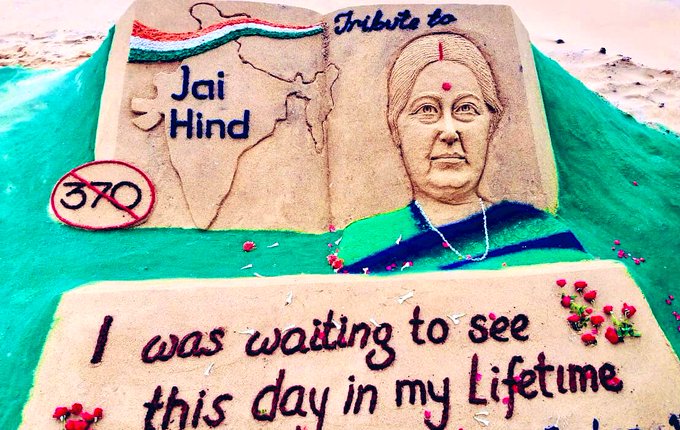 Tribute to
Jai
Hind
370
I was waiting to see
this day in my Lifetime